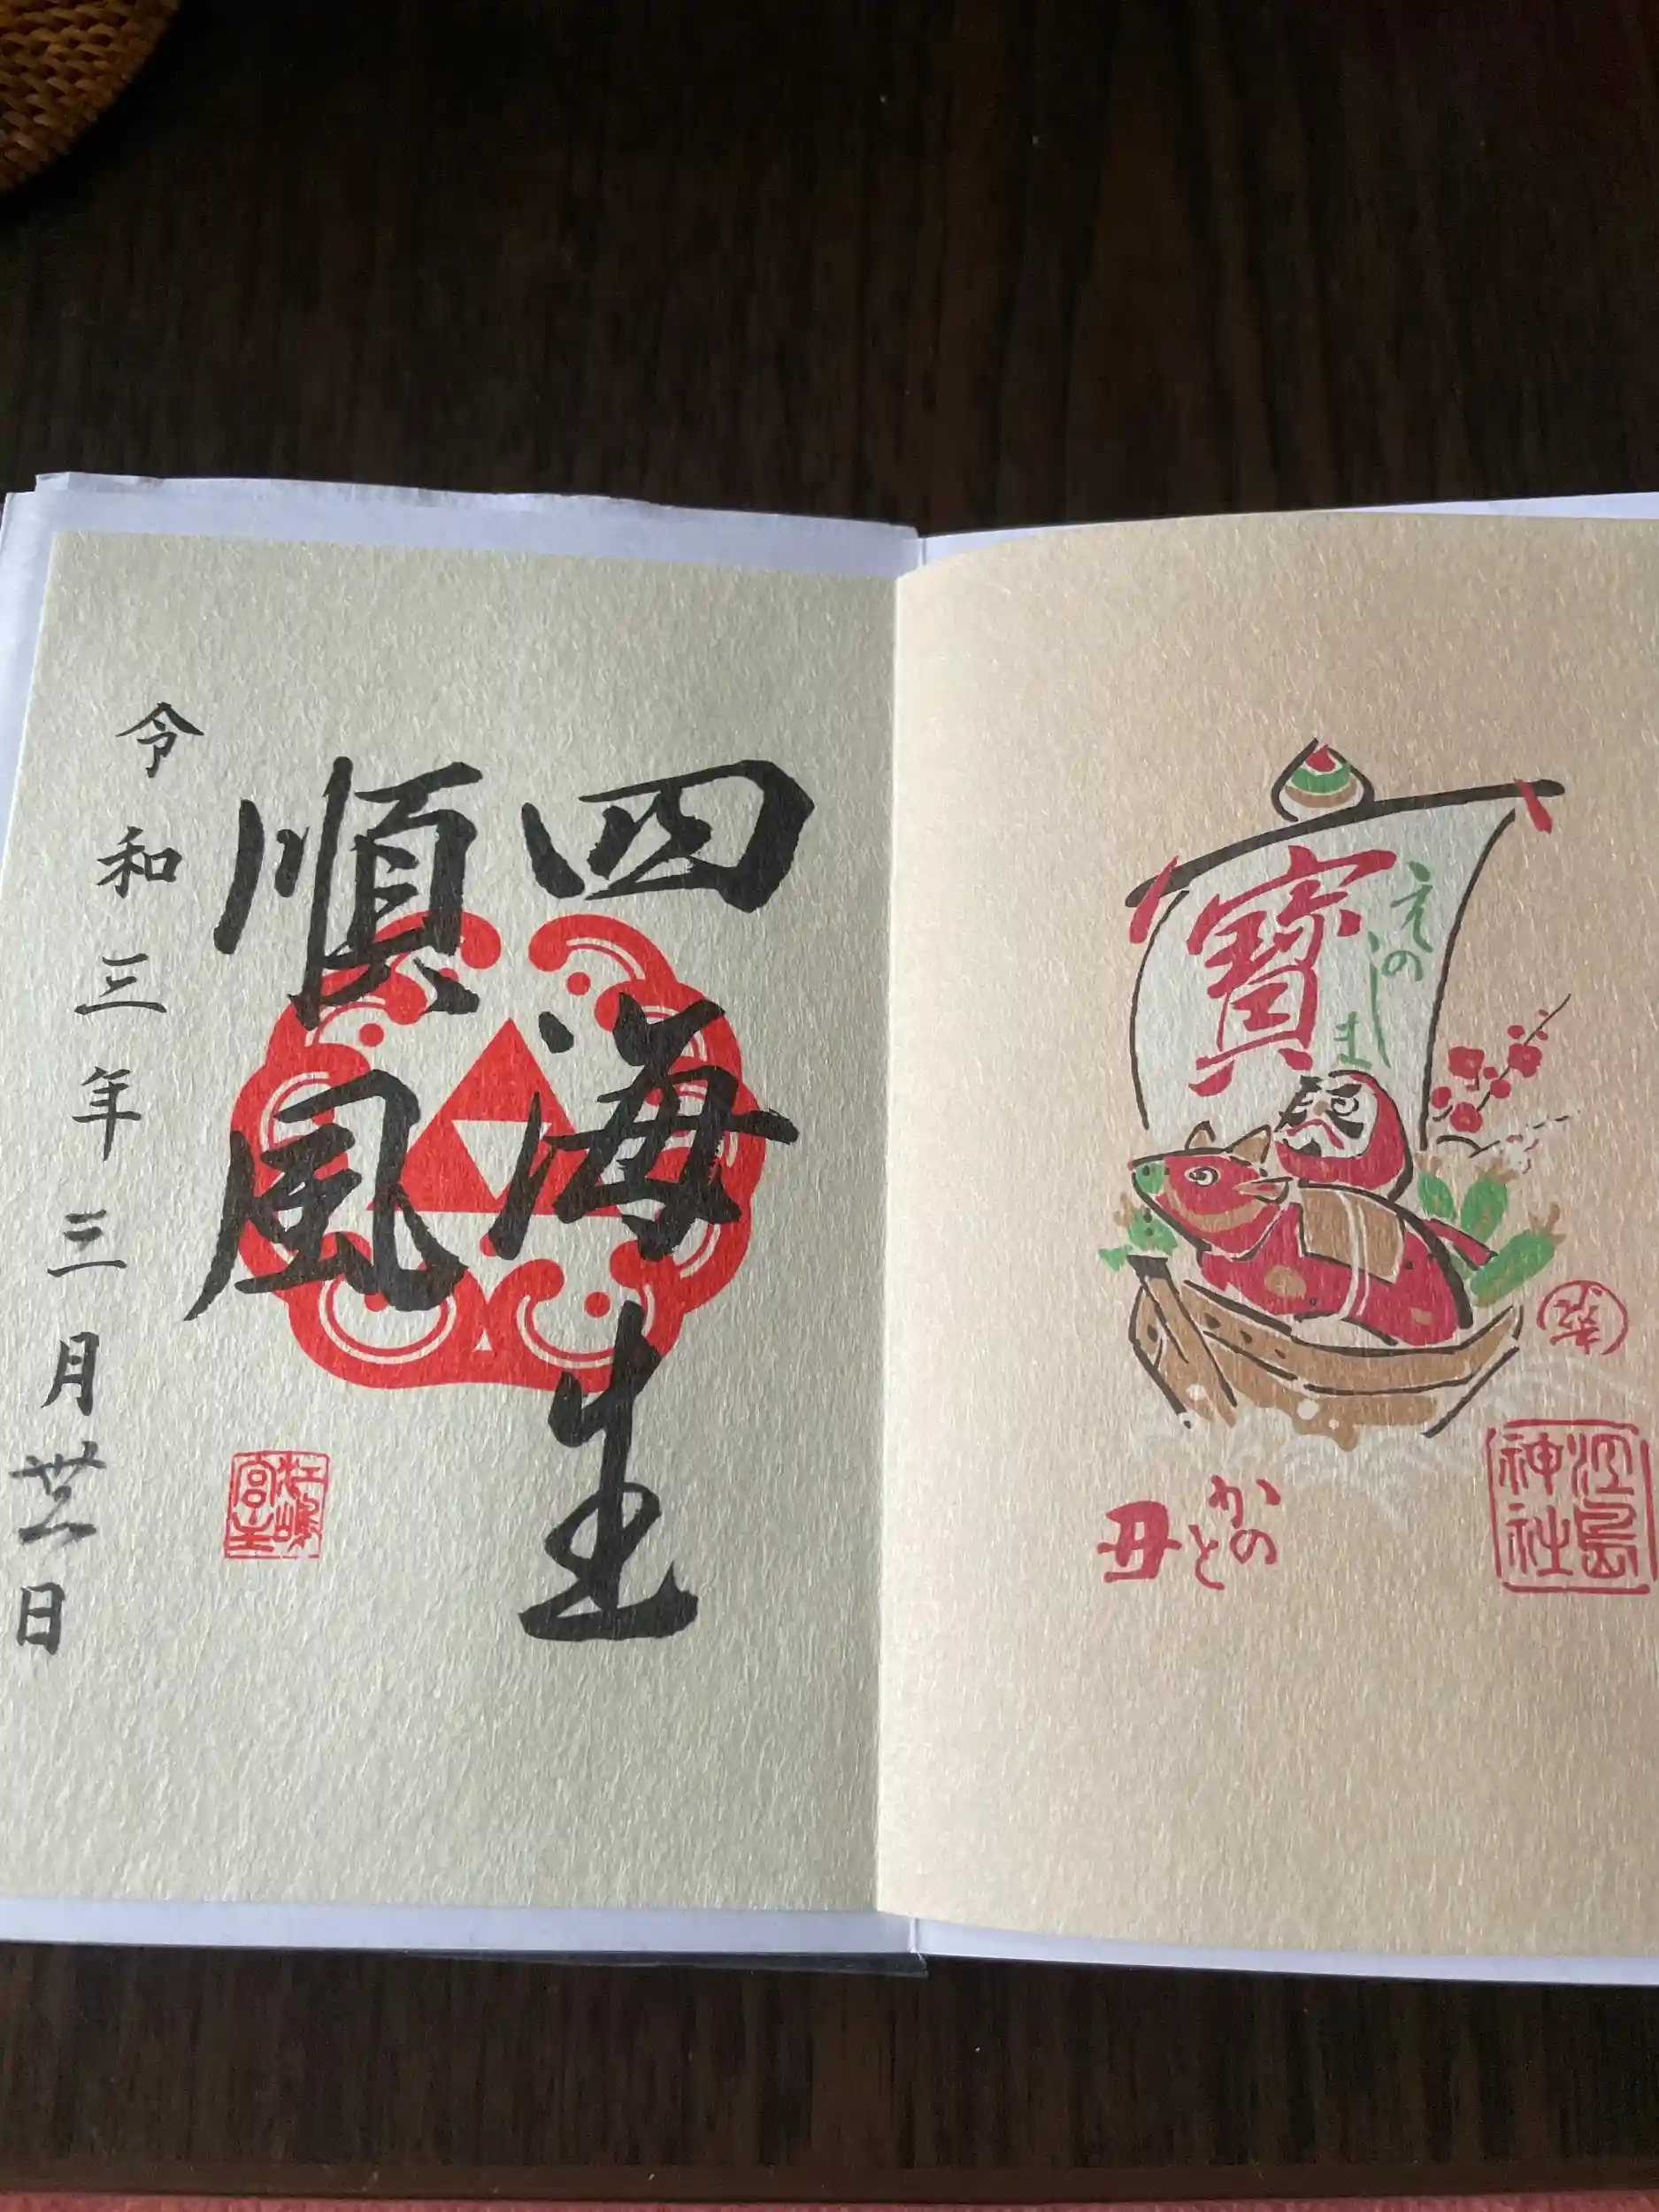 えのしま
寶
江島
神社
かのと
丑
四海生
順風
令和三年三月日
江嶋